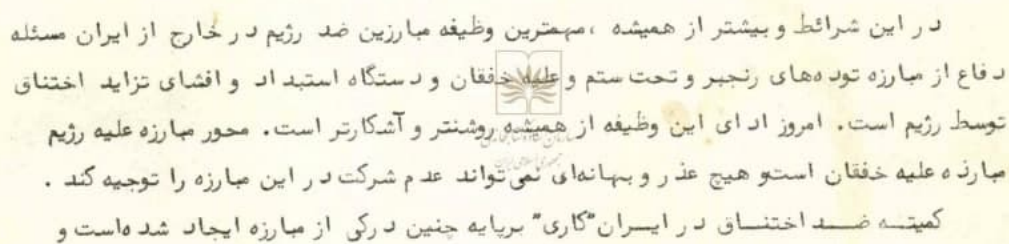 در این شرائط و بیشتر از همیشه ، مهمترین وظیفه مبارزین ضد رژیم در خارج از ایران مسئله
دفاع از مبارزه توده‌های رنجبر و تحت ستم و علیه خفقان و دستگاه استبداد و افشای تزاید اختناق
توسط رژیم است. امروز ادای این وظیفه از همیشه روشنتر و آشکارتر است. محور مبارزه علیه رژیم
مبارزه علیه خفقان استو هیچ عذر و بهانه‌ای نمی‌تواند عدم شرکت در این مبارزه را توجیه کند .
کمیته ضد اختناق در ایران"کاری" برپایه چنین درکی از مبارزه ایجاد شده‌است و